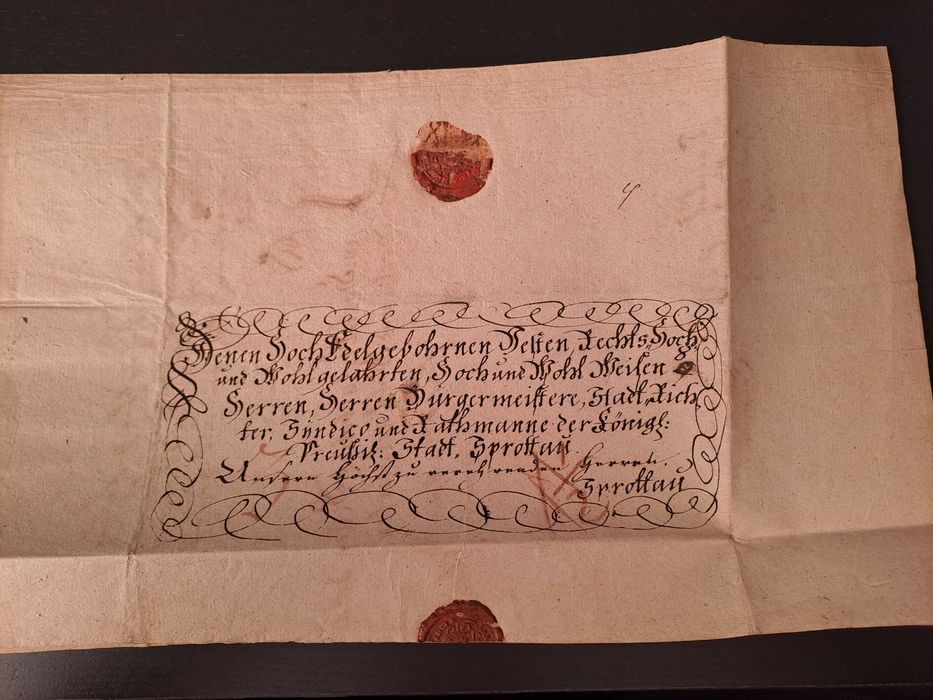 Denen HochEdelgebohrnen Vesten, Rechts, Hoch
und Wohlgelahrten, Hoch und Wohl Weisen
Herren, Herren Bürgermeistere, Stadt, Rich
ter, Syndico und Rathmanne der Königl:
Preußis: Stadt, Sprottau.
Unsern Höchst zu verehrenden Herren.
Sprottau